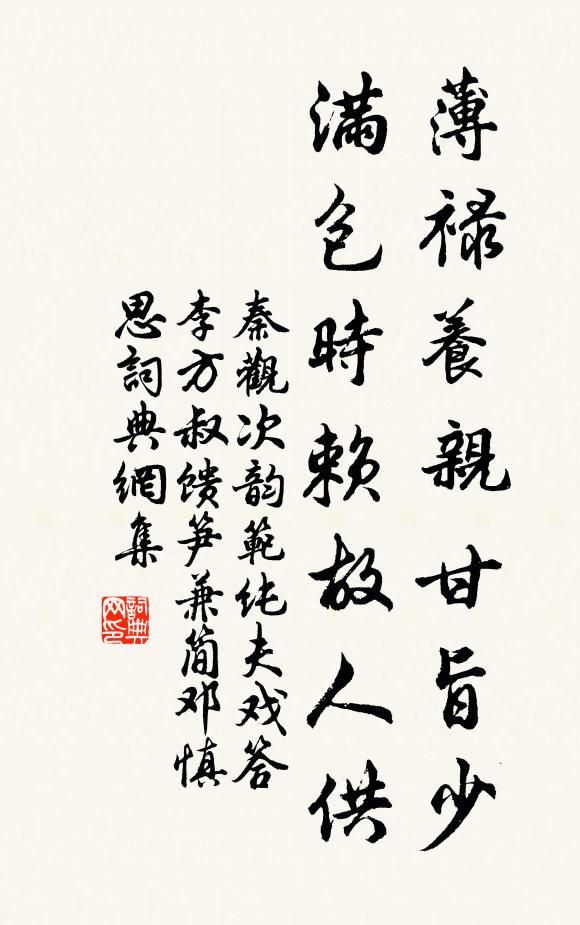 薄禄養親甘旨少
滿包時赖故人供
秦觀次韵範纯夫戏答
李方叔馈笋兼简邓慎
思詞典網集
詞典
网印